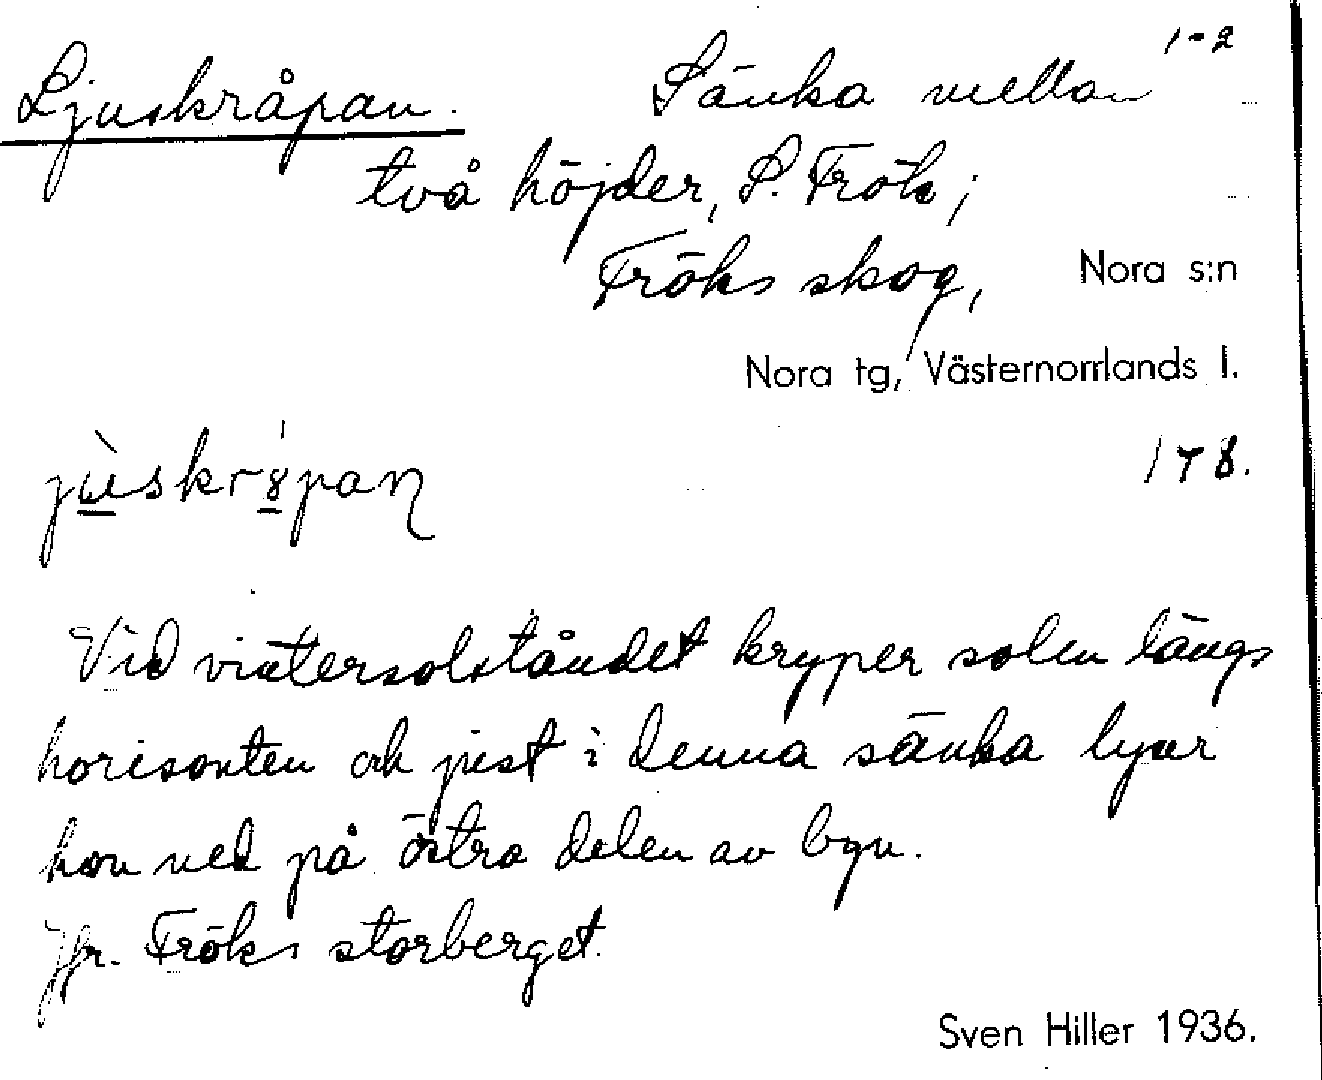 1-2
Ljuskråpan. Sänka mellan
två höjder, S. Frök;
Fröks skog, Nora s:n
Nora tg, Västernorrlands l.
178.
Vid vintersolståndet kryper solen längs
horisonten och just i denna sänka lyser
hon ned på östra delen av byn.
Jfr. Fröks storberget.
Sven Hiller 1936.